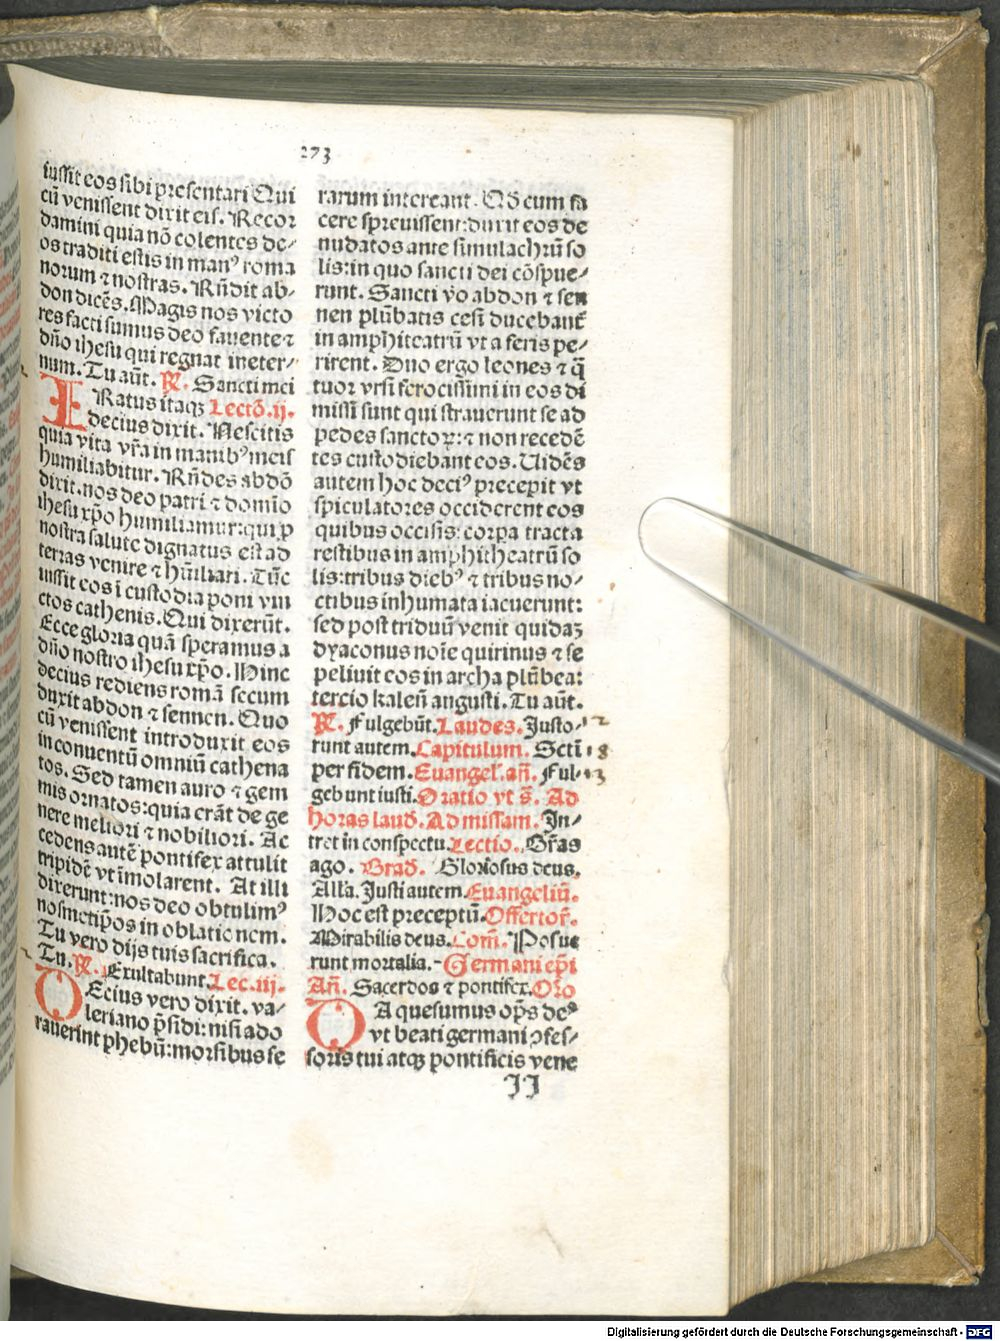 273
iussit eos sibi presentari Qui
cū venissent dixit eis. Recor
damini quia nō colentes de⸗
os traditi estis in manꝰ roma
norum ⁊ nostras. Rñdit ab⸗
don dicēs. Magis nos victo
res facti sumus deo fauente ⁊
dño ihesu qui regnat ineter⸗
num. Tu aūt. ℟. Sancti mei
IRatus itaqꝫ Lectō. ij.
decius dixit. Nescitis
quia vita vr̄a in manibꝰ meis
humiliabitur. Rñdes abdō
dixit. nos deo patri ⁊ domīo
ihesu xp̄o humiliamur: qui ꝓ
nostra salute dignatus est ad
terras venire ⁊ hūiliari. Tūc
iussit eos ī custodia poni vin
ctos cathenis. Qui dixerūt.
Ecce gloria quā speramus a
dño nostro ihesu xp̄o. Hinc
decius rediens romā secum
duxit abdon ⁊ sennen. Quo
cū venissent introduxit eos
in conuentū omniū cathena
tos. Sed tamen auro ⁊ gem
mis ornatos: quia erāt de ge
nere meliori ⁊ nobiliori. Ac
cedens autē pontifex attulit
tripidē vt īmolarent. At illi
dixerunt: nos deo obtulimꝰ
nosmetip̄os in oblationem.
Tu vero dijs tuis sacrifica.
Tu. ℟. Exultabunt. Lec. iij.
DEcius vero dixit. va⸗
leriano p̄sidi: nisi ado
rauerint phebū: morsibus fe
rarum intereant. Qd̄ cum fa
cere spreuissent: duxit eos de
nudatos ante simulachrū so
lis: in quo sancti dei cōspue⸗
runt. Sancti ṽo abdon ⁊ sen
nen plūbatis cesi ducebant̄
in amphiteatrū vt a feris pe⸗
rirent. Duo ergo leones ⁊ q̄
tuor vrsi ferocissimi in eos di
missi sunt qui strauerunt se ad
pedes sanctoꝝ: ⁊ non recedē
tes custodiebant eos. Uidēs
autem hoc deciꝰ precepit vt
spiculatores occiderent eos
quibus occisis: corpa tracta
restibus in amphitheatrū so
lis: tribus diebꝰ ⁊ tribus no⸗
ctibus inhumata iacuerunt:
sed post triduū venit quidaꝫ
dyaconus noīe quirinus ⁊ se
peliuit eos in archa plūbea:
tercio kaleñ augusti. Tu aūt.
℟. Fulgebūt. Laudes. Justo⸗ 12
runt autem. Capitulum. Sctī 18
per fidem. Euangel. añ. Ful⸗ 13
gebunt iusti. Oratio vt s̄. Ad
horas laud̄. Ad missam. In⸗
tret in conspectu. Lectio. Gr̄as
ago. Grad̄. Gloriosus deus.
Alla. Justi autem. Euangeliū.
Hoc est preceptū. Offertor̄.
Mirabilis deus. Com̄. Posue
runt mortalia. Germani ep̄i
Añ. Sacerdos ⁊ pontifex. Oro
DA quesumus op̄s deꝰ
vt beati germani ꝯfes⸗
soris tui atqꝫ pontificis vene
II
Digitalisierung gefördert durch die Deutsche Forschungsgemeinschaft - DFG